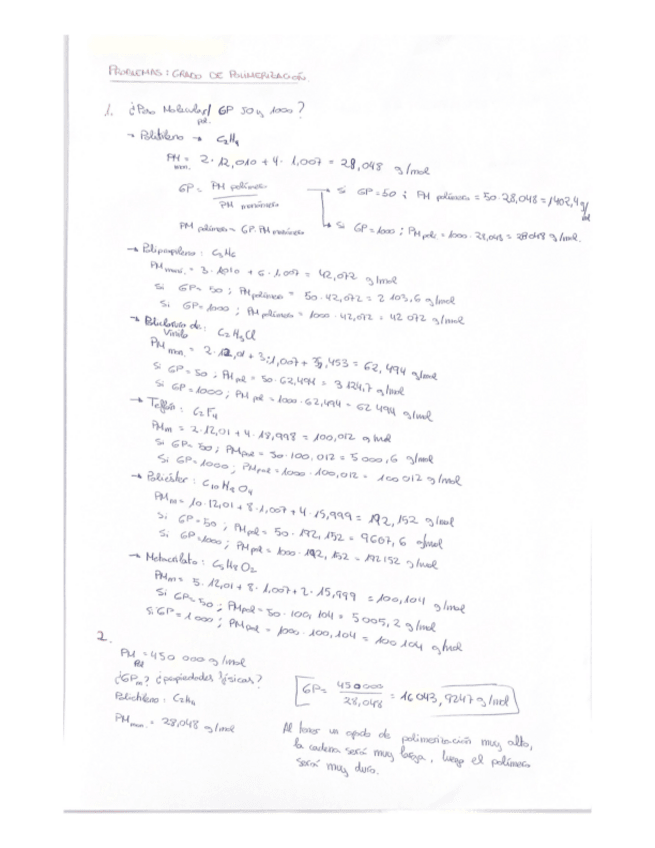 PROBLEMAS: GRADO DE POLIMERIZACIÓN.
1. ¿Peso Molecular pol. / GP 50 y 1000?
→ Polietileno → C₂H₄
PM mon. = 2·12,010 + 4·1,007 = 28,048 g/mol
GP = PM polímero / PM monómero
→ Si GP=50 ; PM polímero = 50·28,048 = 1402,4 g/mol
PM polímero = GP·PM monómero
↳ Si GP=1000 ; PM pol. = 1000·28,048 = 28048 g/mol.
→ Polipropileno : C₃H₆
PM mon. = 3·1010 + 6·1.007 = 42,072 g/mol
Si GP= 50 ; PM polímero = 50·42,072 = 2 103,6 g/mol
Si GP=1000 ; PM polímero = 1000·42,072 = 42 072 g/mol
→ Policloruro de Vinilo : C₂H₃Cl
PM mon. = 2·12,01 + 3·1,007 + 35,453 = 62,494 g/mol
Si GP=50 ; PM pol = 50·62,494 = 3 124,7 g/mol
Si GP=1000 ; PM pol = 1000·62,494 = 62 494 g/mol
→ Teflón : C₂F₄
PMm = 2·12,01 + 4·18,998 = 100,012 g/mol
Si GP= 50 ; PMpol = 50·100,012 = 5 000,6 g/mol
Si GP=1000 ; PMpol = 1000·100,012 = 100 012 g/mol
→ Poliéster : C₁₀H₈O₄
PMm = 10·12,01 + 8·1,007 + 4·15,999 = 192,152 g/mol
Si GP=50 ; PMpol = 50·192,152 = 9607,6 g/mol
Si GP=1000 ; PMpol = 1000·192,152 = 192152 g/mol
→ Metacrilato : C₅H₈O₂
PMm = 5·12,01 + 8·1,007 + 2·15,999 = 100,104 g/mol
Si GP=50 ; PMpol = 50·100,104 = 5 005,2 g/mol
Si GP=1000 ; PMpol = 1000·100,104 = 100 104 g/mol
2.
PM pol = 450 000 g/mol
¿GPm? ¿propiedades físicas?
Polietileno : C₂H₄
PM mon. = 28,048 g/mol
GP = 450000 / 28,048 = 16043,9247 g/mol
Al tener un grado de polimerización muy alto,
la cadena será muy larga, luego el polímero
será muy duro.